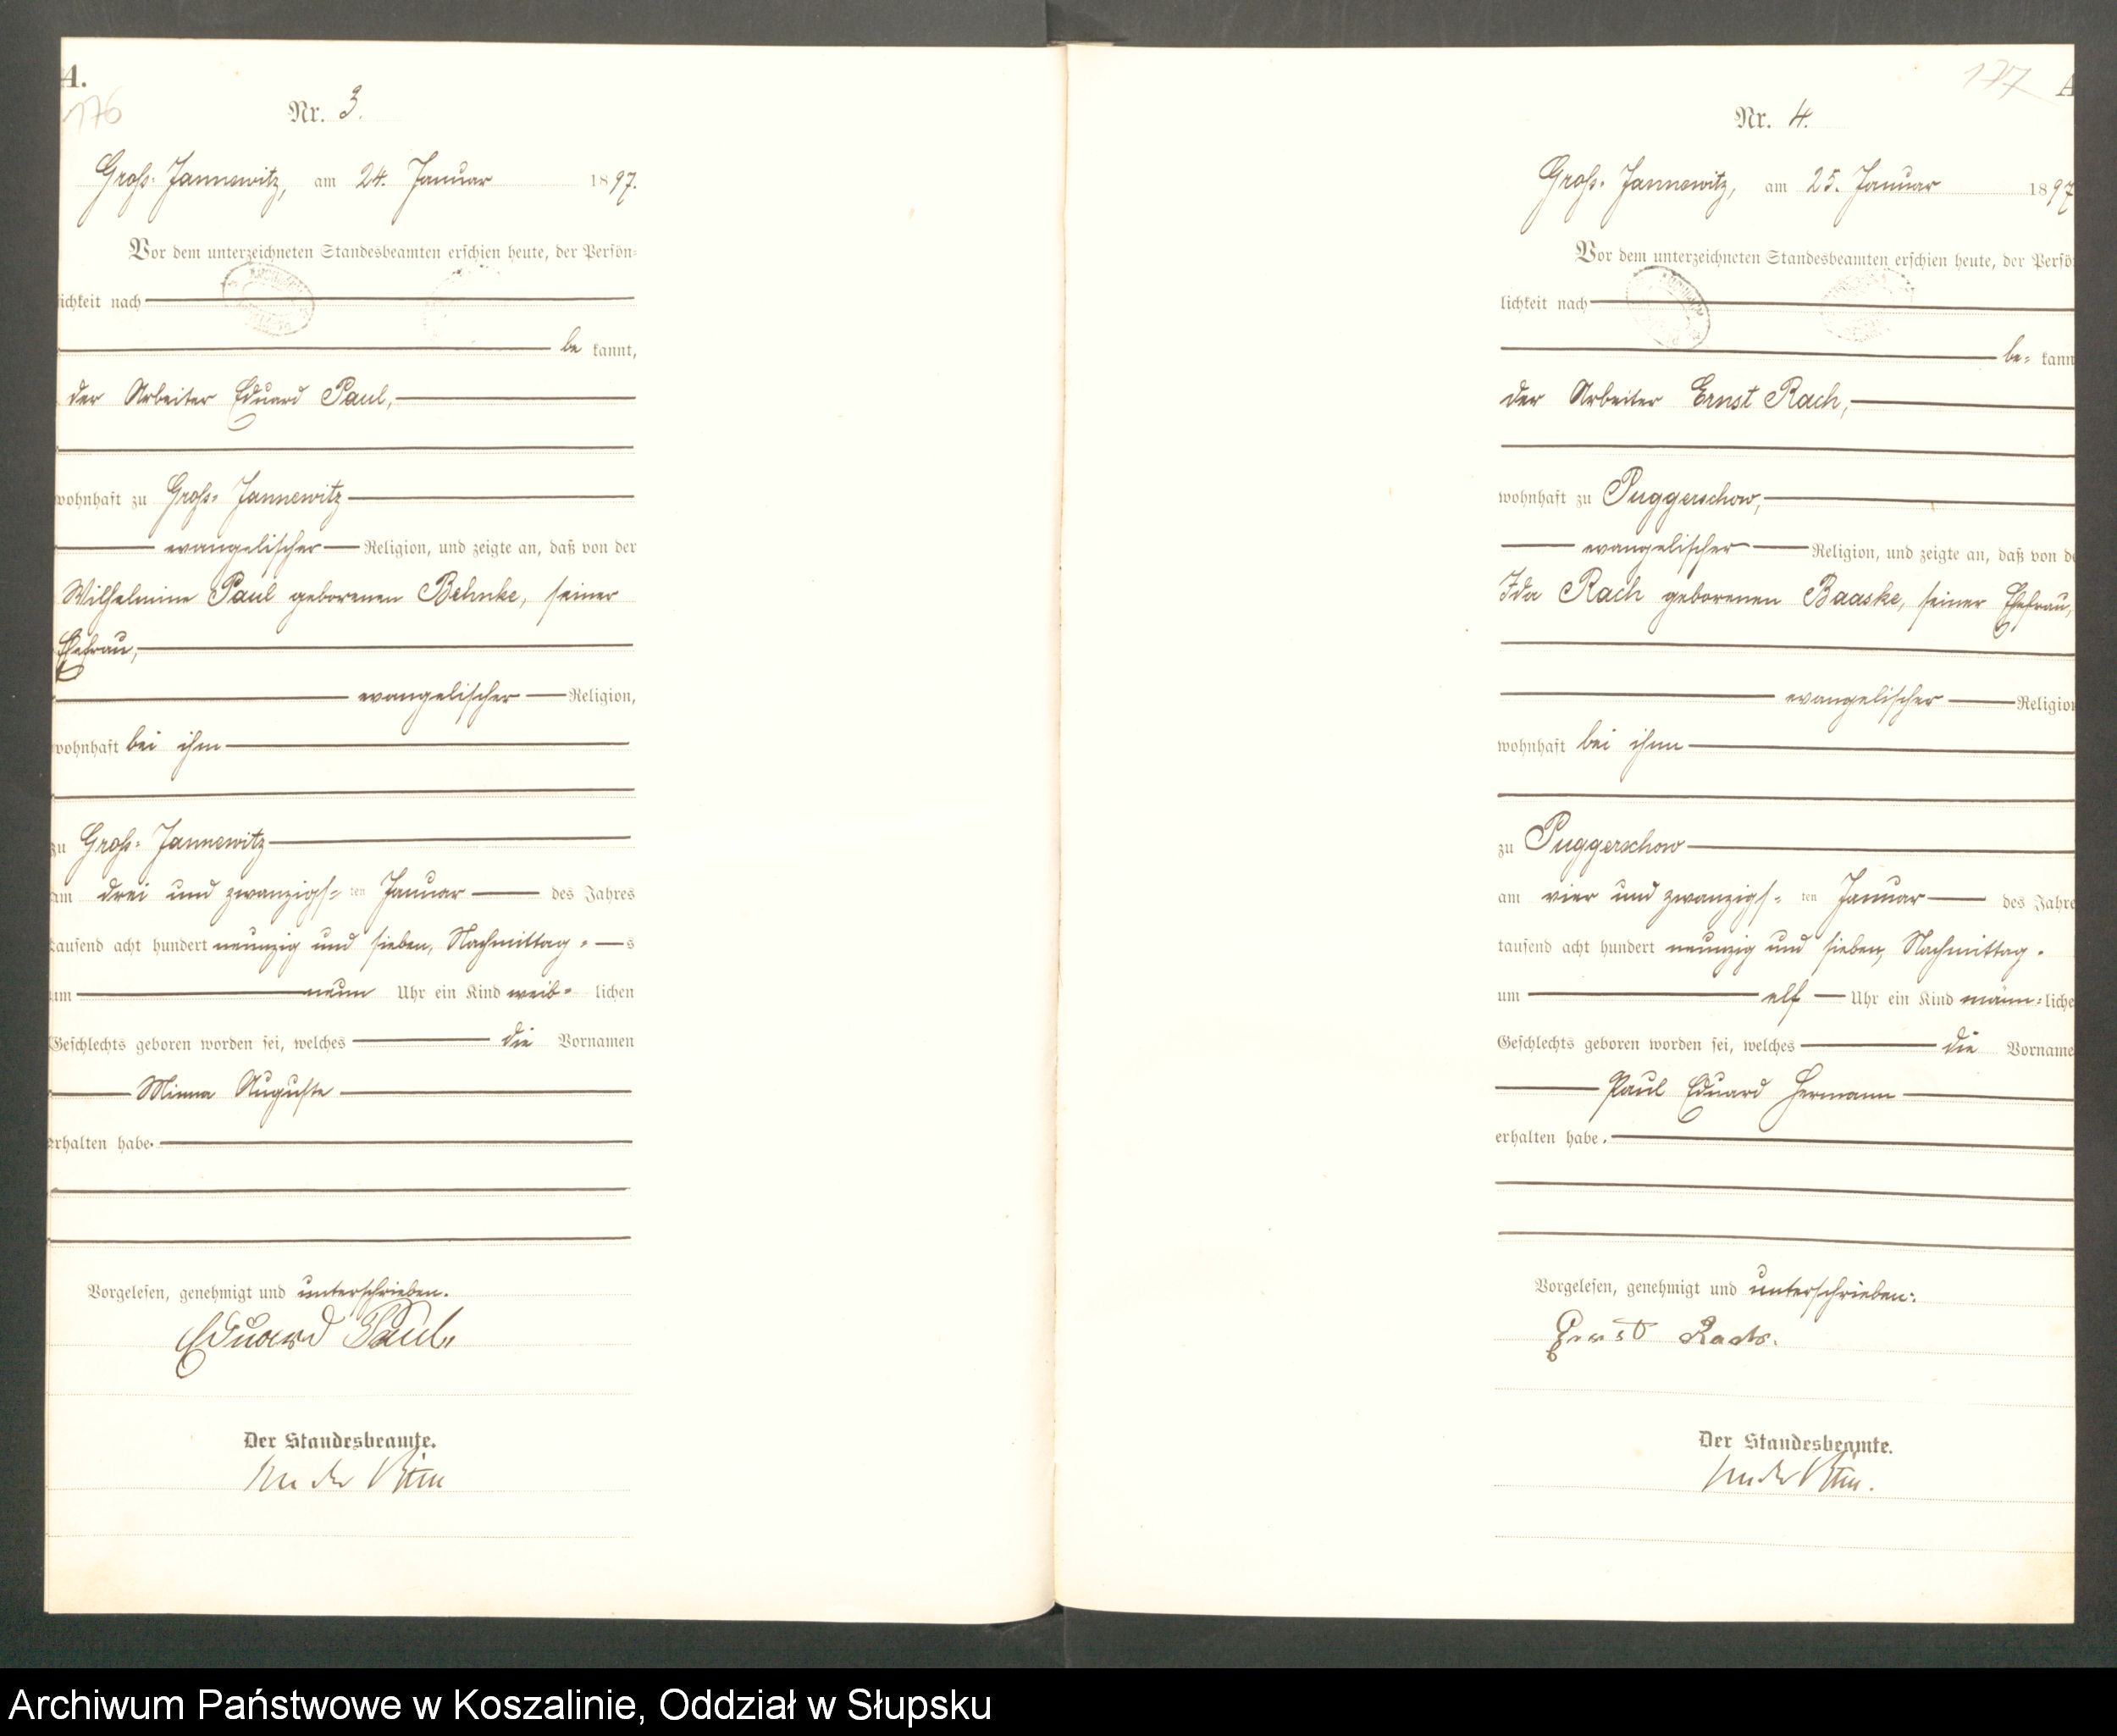 A.
176
Nr. 3.
Groß-Jannewitz, am 24. Januar 1897.
Vor dem unterzeichneten Standesbeamten erschien heute, der Persön-
lichkeit nach
be kannt,
der Arbeiter Eduard Paul,
wohnhaft zu Groß-Jannewitz
evangelischer Religion, und zeigte an, daß von der
Wilhelmine Paul geborenen Behnke, seiner
Ehefrau,
evangelischer Religion,
wohnhaft bei ihm
zu Groß-Jannewitz
am drei und zwanzigs-ten Januar des Jahres
tausend acht hundert neunzig und sieben, Nachmittag-s
um neun Uhr ein Kind weib-lichen
Geschlechts geboren worden sei, welches die Vornamen
Minna Auguste
erhalten habe.
Vorgelesen, genehmigt und unterschrieben.
Eduard Paul.
Der Standesbeamte.
177
A
Nr. 4.
Groß-Jannewitz, am 25. Januar 1897
Vor dem unterzeichneten Standesbeamten erschien heute, der Persö
lichkeit nach
be- kann
der Arbeiter Ernst Rach,
wohnhaft zu Puggerschow,
evangelischer Religion, und zeigte an, daß von de
Ida Rach geborenen Baaske, seiner Ehefrau,
evangelischer Religion
wohnhaft bei ihm
zu Puggerschow
am vier und zwanzigs-ten Januar des Jahre
tausend acht hundert neunzig und sieben, Nachmittag-
um elf Uhr ein Kind männ-liche
Geschlechts geboren worden sei, welches die Vorname
Paul Eduard Hermann
erhalten habe.
Vorgelesen, genehmigt und unterschrieben:
Ernst Rach.
Der Standesbeamte.
Archiwum Państwowe w Koszalinie, Oddział w Słupsku